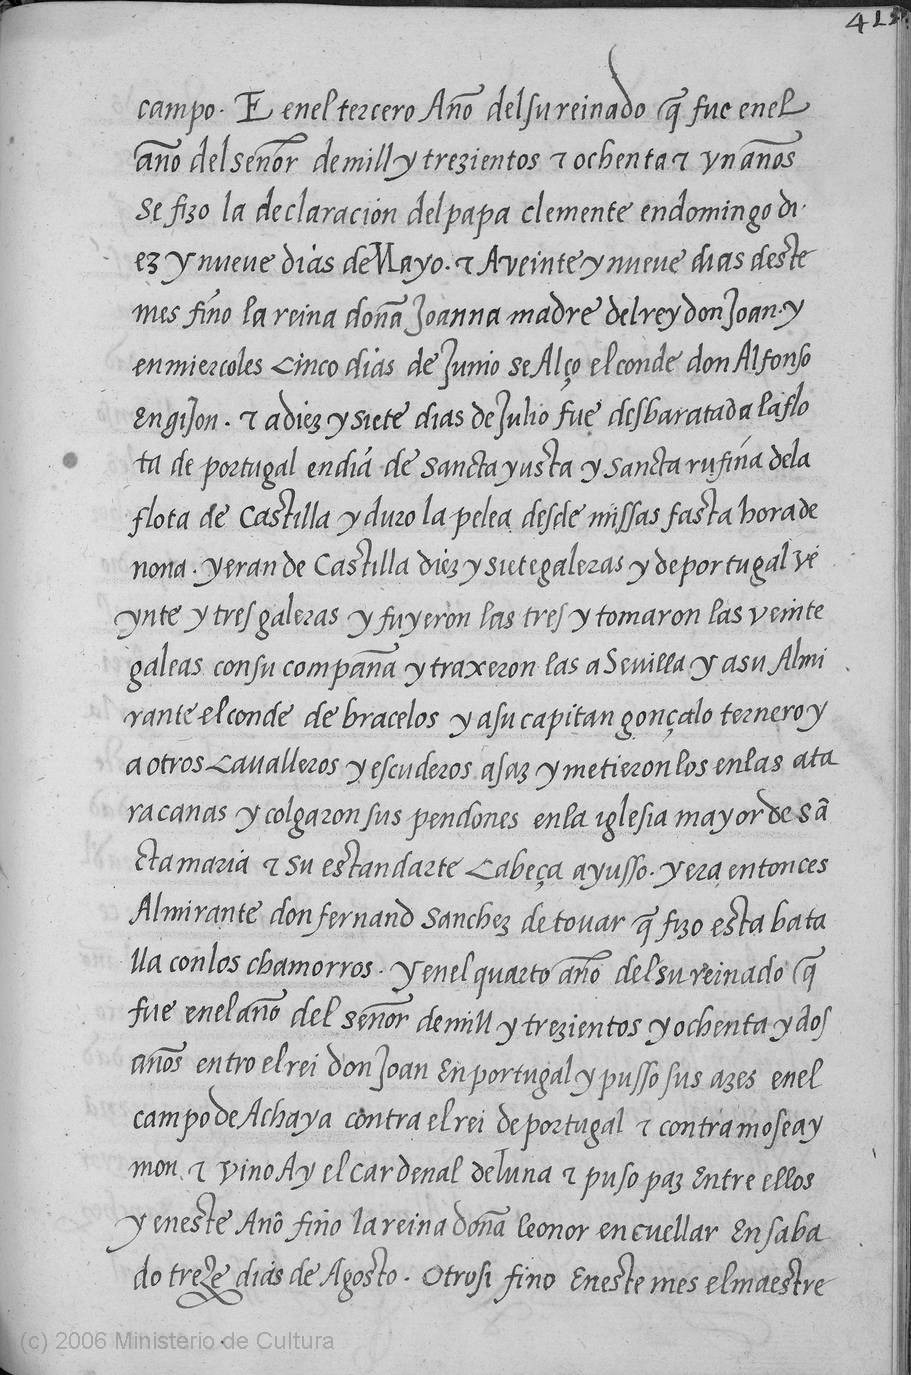 415
campo. E enel tercero Año del su reinado q̃ fue enel
año del señor de mill y trezientos τ ochenta τ vn años
se fizo la declaracion del papa clemente en domingo di
ez y nueve dias de Mayo. τ A veinte y nueve dias deste
mes fino la reina doña Joanna madre del rey don Joan. y
en miercoles cinco dias de Junio se Alço el conde don Alfonso
En giJon. τ a diez y siete dias de Julio fue desbaratada la flo
ta de portugal en dia de sancta yusta y sancta rufina dela
flota de Castilla y duro la pelea desde missas fasta hora de
nona. y eran de Castilla diez y siete galeras y de portugal ve
ynte y tres galeras y fuyeron las tres y tomaron las veinte
galeas con su compaña y traxeron las a Sevilla y a su Almi
rante el conde de bracelos y a su capitan gonçalo ternero y
a otros cavalleros y escuderos asaz y metieron los en las ata
racanas y colgaron sus pendones en la iglesia mayor de sã
cta maria τ su estandarte cabeça ayusso. y era entonces
Almirante don fernand sanchez de touar q̃ fizo esta bata
lla con los chamorros. y enel quarto año del su reinado q̃
fue enel año del señor de mill y trezientos y ochenta y dos
años entro el rei don Joan En portugal y pusso sus azes enel
campo de Achaya contra el rei de portugal τ contra mose ay
mon τ vino Ay el cardenal de luna τ puso paz Entre ellos
y en este Año fino la reina doña leonor en cuellar En saba
do treze dias de Agosto. Otrosi fino En este mes el maestre
(c) 2006 Ministerio de Cultura